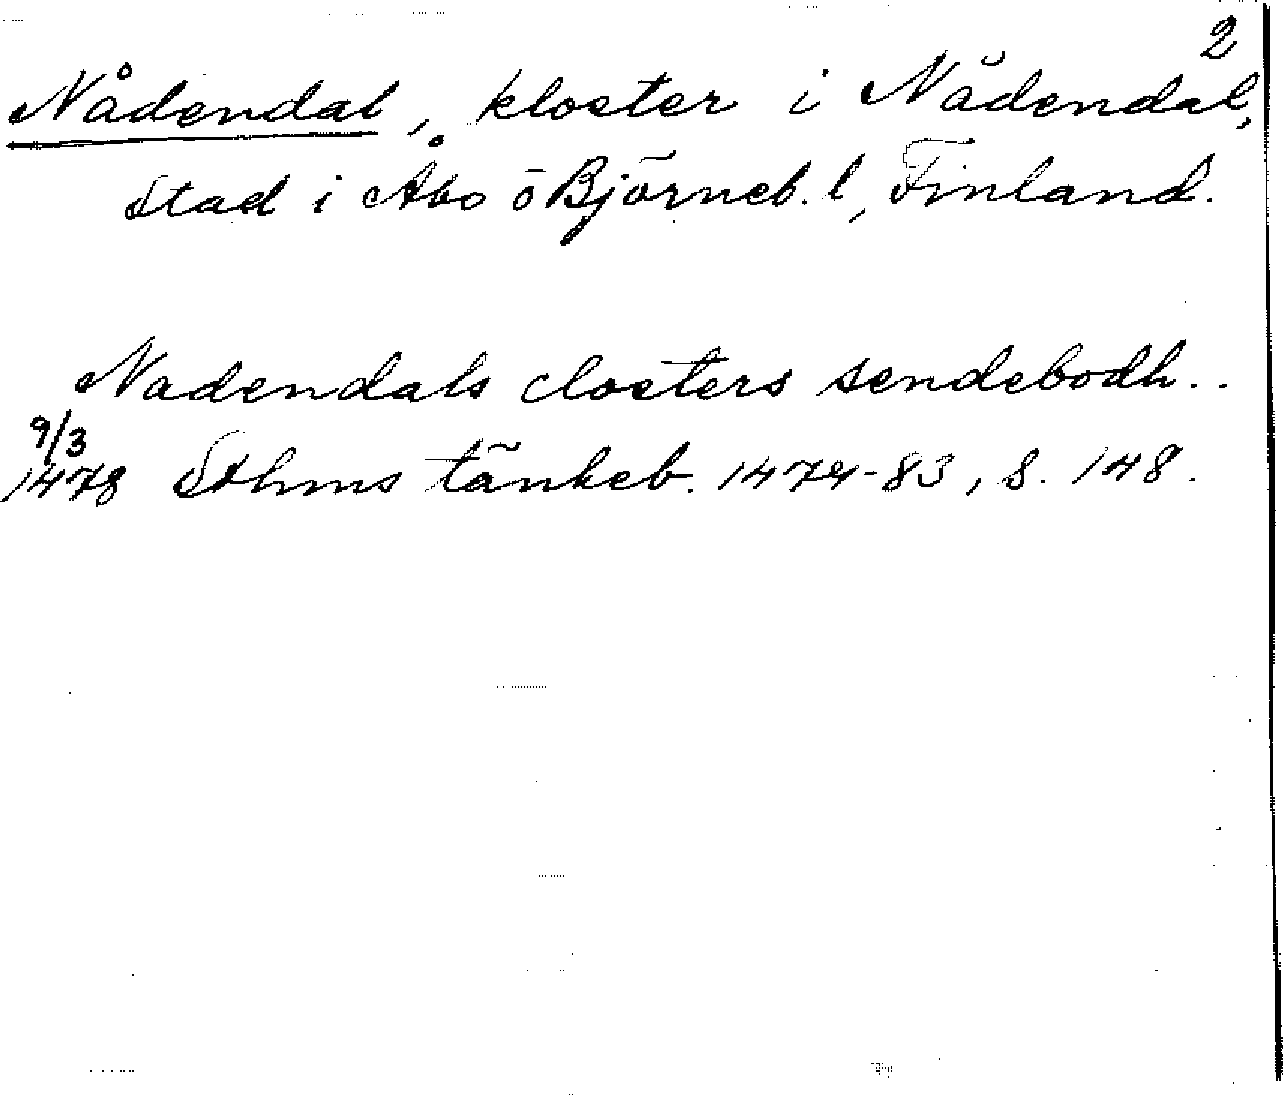 2
Nådendal, kloster i Nådendal,
stad i Åbo ö Björneb. l, Finland.
Nadendals closters sendebodh..
9/3
1478 Sthms tänkeb. 1474-83, s. 148.